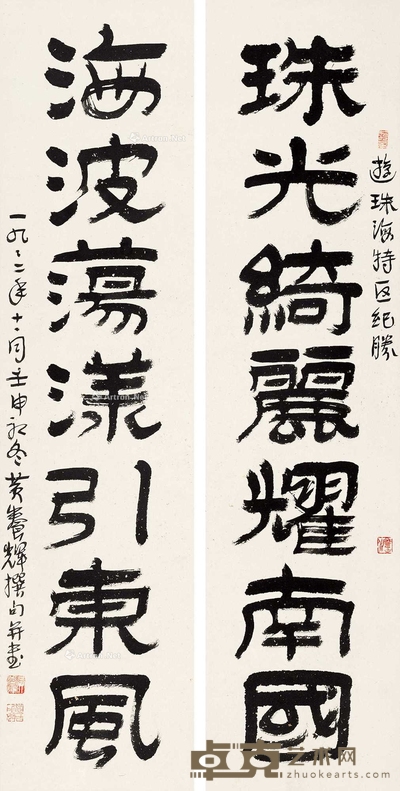 遊珠海特区纪勝
珠光綺麗耀南國
海波蕩漾引東風
一九九二年十一月壬申初冬黄养辉撰句并书
卓克艺术网
zhuokearts.com